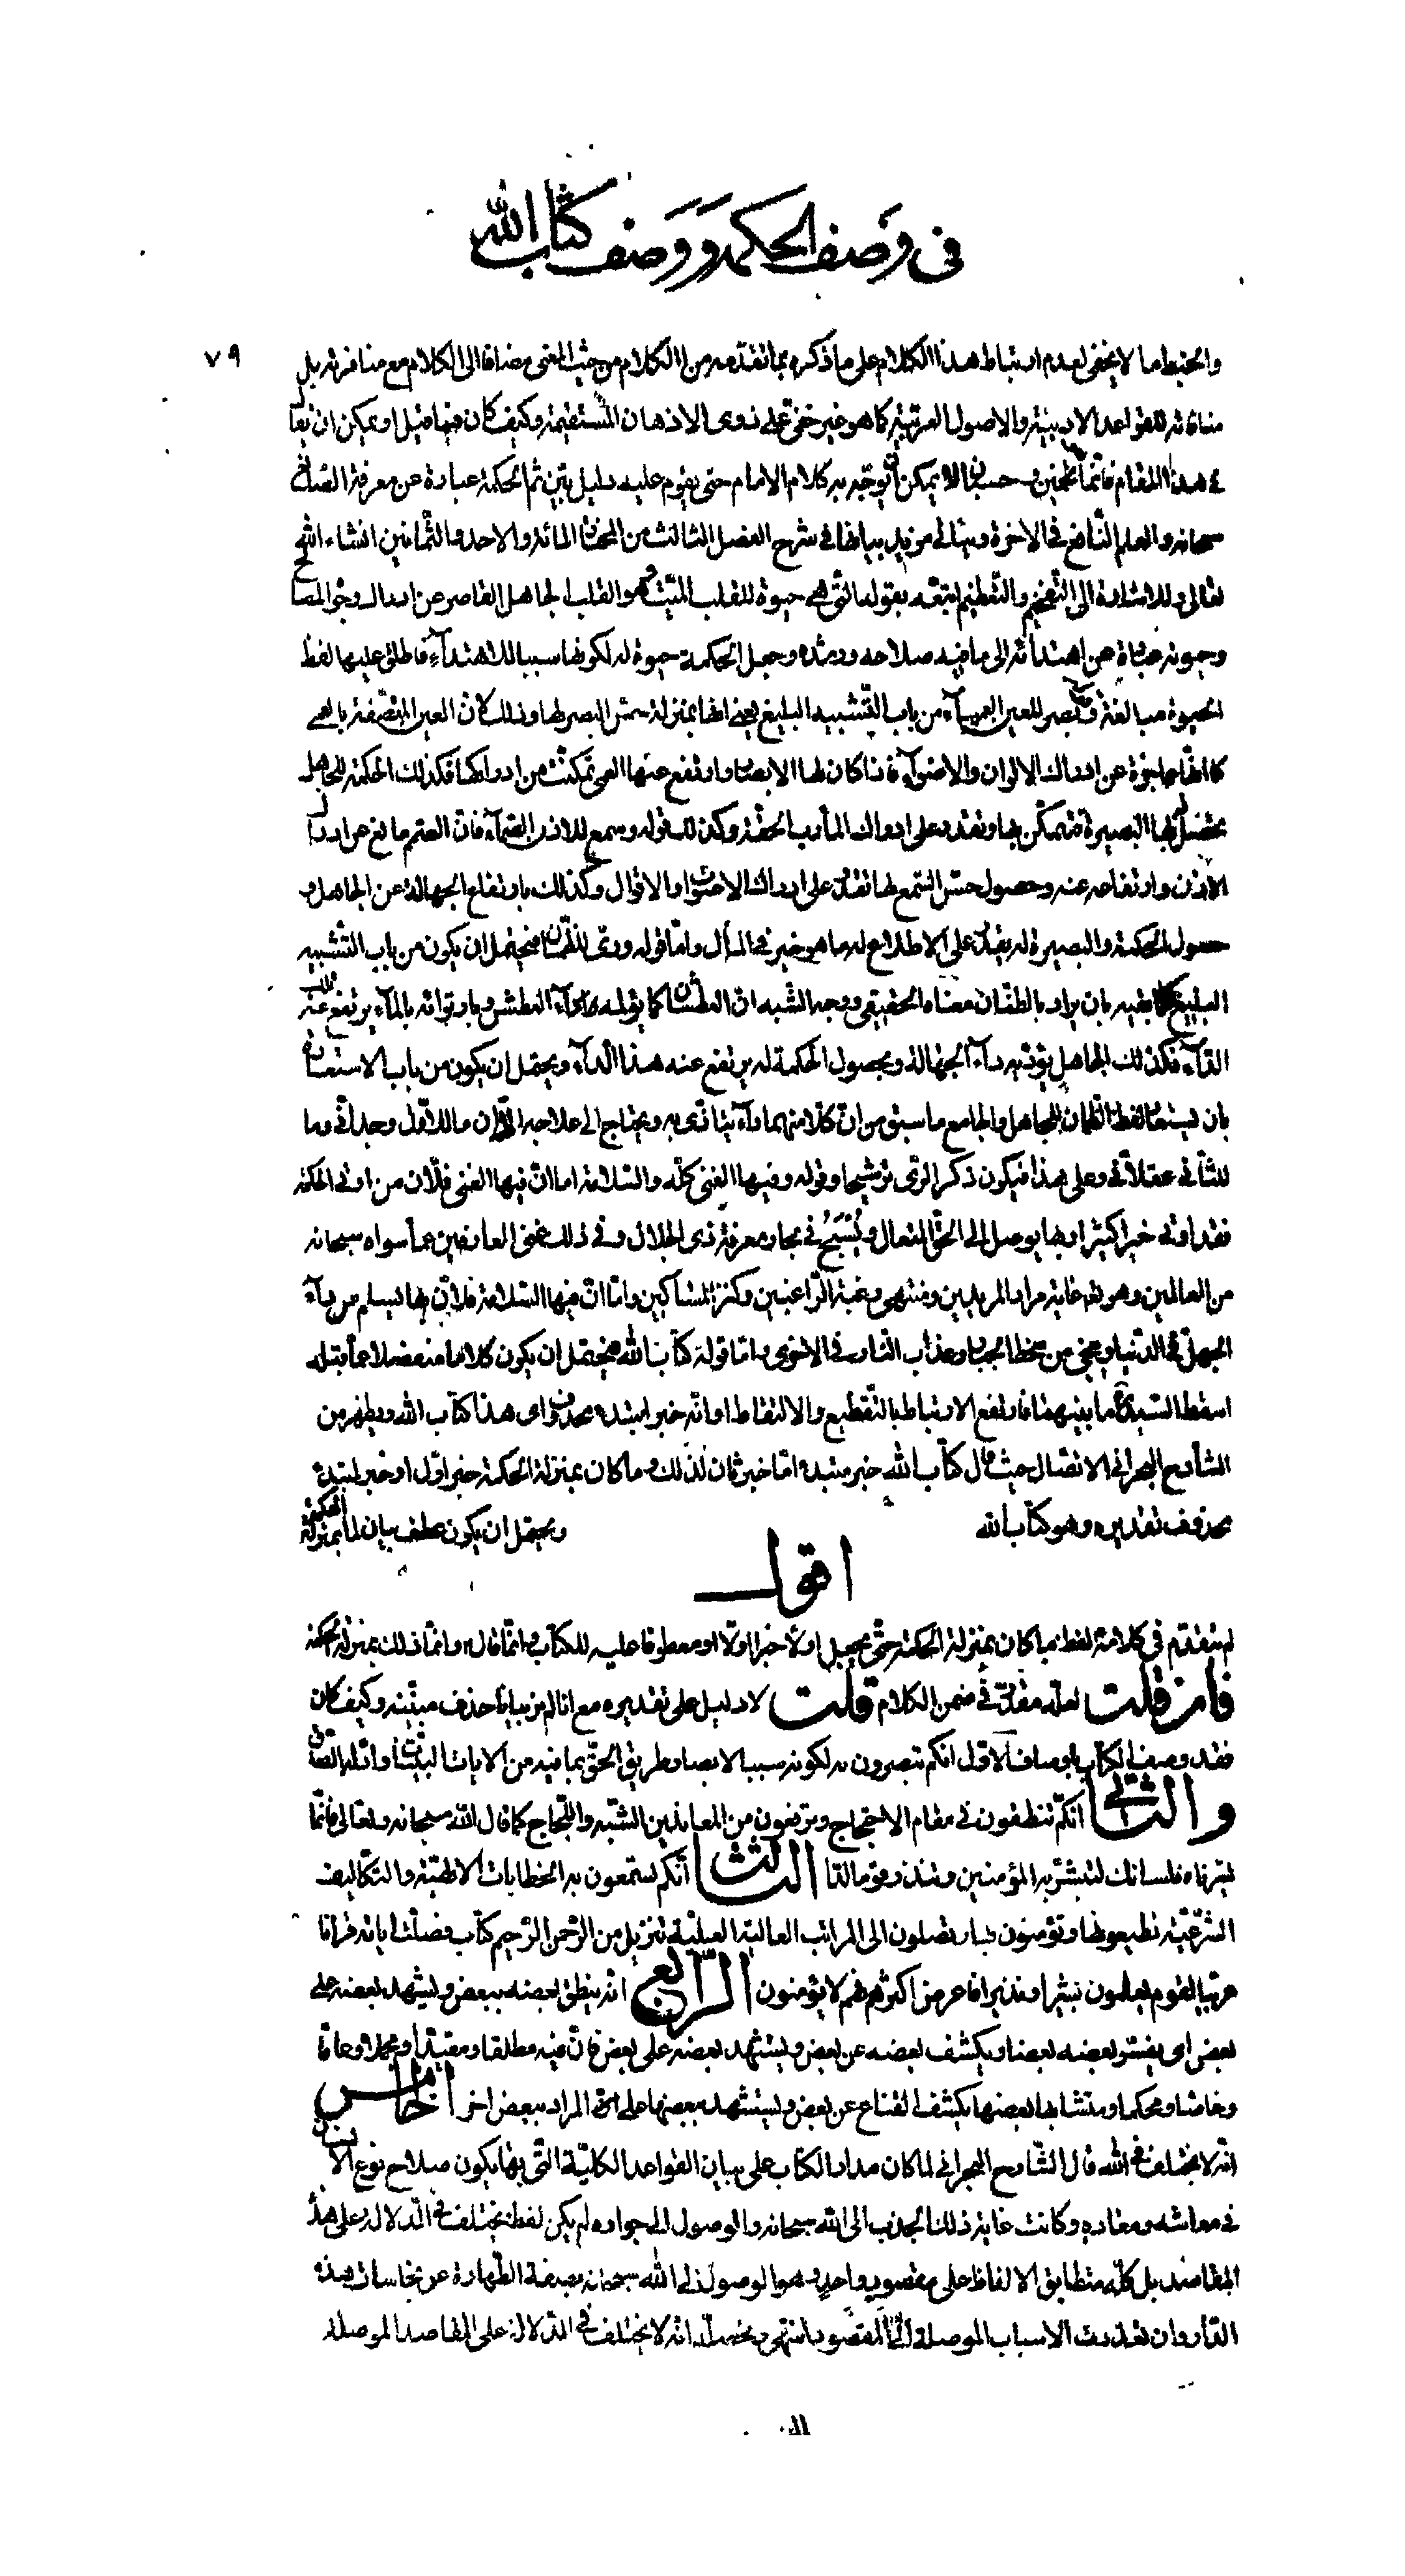 في وصف الحكمة ووصف كتاب الله
٧٩
والخبط ما لا يخفى لعدم ارتباط هذا الكلام على ما ذكره بما تقدمه من الكلام من حيث المعنى مضافا الى الكلام مع منافرته بل
منافاته للقواعد الادبية والاصول العربية كما هو غير خفي على ذوى الاذهان المستقيمة وكيف كان فما قيل او يمكن ان يقال
في هذا المقام فانما تخمين وحسبان لا يمكن ان يوجه به كلام الامام حتى يقوم عليه دليل بين ثم الحكمة عبارة عن معرفة الصانع
سبحانه والعلم النافع في الاخرة وسيأتى مزيد بيانها في شرح الفصل الثالث من المختار المائة والاحد والثمانين انشاء الله
تعالى وللاشارة الى التفخيم والتعظيم اتبعه بقوله التي هي حيوة للقلب الميت وهو القلب الجاهل القاصر عن ادراك وجوه المصالح
وحيوته عبارة عن اهتدائه الى ما فيه صلاحه ورشده وجعل الحكمة حيوة له لكونها سببا للاهتداء فاطلق عليها لفظ
الحيوة مبالغة وبصر للعين العمياء من باب التشبيه البليغ يعنى انها بمنزلة حس البصر لها وذلك لان العين المتصفة بالعمى
كما انها عاجزة عن ادراك الالوان والاضواء فاذا كان لها الابصار وارتفع عنها العمى تمكنت من ادراكها فكذلك الحكمة للجاهل
يحصل بها البصيرة فتمكن بها وتقدر على ادراك المأرب الحقة وكذلك قوله وسمع للاذن الصماء فان الصمم مانع عن ادراك
الاذن وارتفاعه عنه وحصول حس السمع لها تقدر على ادراك الاصوات والاقوال وكذلك بارتفاع الجهالة عن الجاهل و
حصول الحكمة والبصيرة له يقدر على الاطلاع له ما هو خير في المأل واما قوله ورى للظمان فيحتمل ان يكون من باب التشبيه
البليغ كسابقيه بان يراد بالظمآن معناه الحقيقي ووجه الشبه ان العطشان كما يؤلمه داء العطش وبارتوائه بالماء يرتفع عنه ذلك
الداء فكذلك الجاهل يؤذيه داء الجهالة وبحصول الحكمة له يرتفع عنه هذا الداء ويحتمل ان يكون من باب الاستعارة
بان يستعار لفظ الظمان للجاهل والجامع ما سبق من ان كلا منهما داء يتأذى به ويحتاج الى علاجه الا ان ما للاول وجداني وما
للثاني عقلاني وعلى هذا فيكون ذكر الرى ترشيحا وقوله وفيها الغنى كله والسلامة اما ان فيها الغنى فلان من اوتى الحكمة
فقد اوتي خيرا كثيرا وبها يوصل الى الحق المتعال ويسبح في بحار معرفة ذى الجلال وفي ذلك غنى العارفين عما سواه سبحانه
من العالمين وهو تعالى غاية مراد المريدين ومنتهى رغبة الراغبين وكنز المساكين واما ان فيها السلامة فلان بها يسلم من داء
الجهل في الدنيا وينجى من سخط الجبار وعذاب النار في الاخرى واما قوله كتاب الله فيحتمل ان يكون كلاما منفصلا عما قبله
اسقط السيد ره ما بينهما فارتفع الارتباط بالتقطيع والالتقاط او انه خبر مبتدء محذوف اى هذا كتاب الله ويظهر من
الشارح البحراني الاتصال حيث قال كتاب الله خبر مبتدء اما خبر ثان لذلك وما كان بمنزلة الحكمة خبر اول او خبر لمبتدء
محذوف تقديره وهو كتاب الله ويحتمل ان يكون عطف بيان لما بمنزلة الحكمة
اقول
لم يتقدم في كلامه لفظ ما كان بمنزلة الحكمة حتى يجعل اولا خبرا اولا او معطوفا عليه للكتاب وانما قال وانما ذلك بمنزلة الحكمة
فان قلت لعله مقدر في ضمن الكلام قلت لا دليل على تقديره مع انا لم نر بيانا حذف مبينه وكيف كان
فقد وصف الكتاب باوصاف الاول انكم تبصرون به لكونه سببا لابصار طريق الحق بما فيه من الايات البينات وادلة الصدق
والثاني انكم تنطقون في مقام الاحتجاج وترفعون من المعاندين الشبه واللجاج كما قال الله سبحانه وتعالى فانما
يسرناه بلسانك لتبشر به المؤمنين وتنذر قوما لدا الثالث انكم تستمعون به الخطابات الالهية والتكاليف
الشرعية تطيعونها وتؤمنون بها وتصلون الى المراتب العالية العلية تنزيل من الرحمن الرحيم كتاب فصلت اياته قرانا
عربيا لقوم يعلمون بشيرا ونذيرا فاعرض اكثرهم فهم لا يؤمنون الرابع انه ينطق بعضه ببعض ويشهد بعضه على
بعض اى يفسر بعضه بعضا ويكشف بعضه عن بعض ويستشهد بعضه على بعض فان فيه مطلقا ومقيدا ومجملا وعاما
وخاصا ومحكما ومتشابها بعضها يكشف القناع عن بعض ويستشهد ببعضها على المراد ببعض اخر الخامس
انه لا يختلف في الله قال الشارح البحراني لما كان مدار الكتاب على بيان القواعد الكلية التي بها يكون صلاح نوع الانسان
في معاشه ومعاده وكانت غاية ذلك الجذب الى الله سبحانه والوصول الى جواره لم يكن لفظ يختلف في الدلالة على هذه
المقاصد بل كله متطابق الالفاظ على مقصود واحد وهو الوصول الى الله سبحانه بصفة الطهارة عن نجاسات هذه
الدار وان تعددت الاسباب الموصلة الى المقصود انتهى ومحصله انه لا يختلف في الدلالة على المقاصد الموصلة